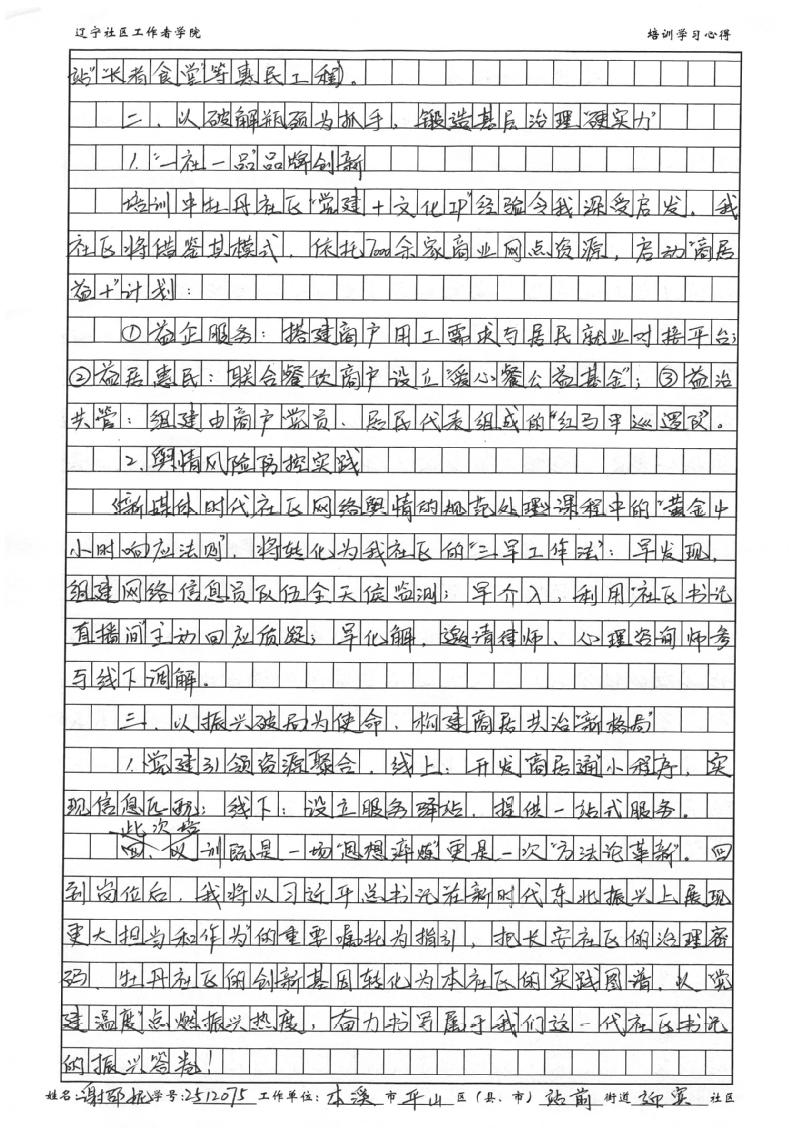 辽宁社区工作者学院 培训学习心得
站”“长者食堂”等惠民工程)。
二、以破解瓶颈为抓手,锻造基层治理“硬实力”
1.“一社一品”品牌创新
培训中牡丹社区“党建+文化IP”经验令我深受启发。我
社区将借鉴其模式,依托7000余家商业网点资源,启动“商居
益+”计划:
①益企服务:搭建商户用工需求与居民就业对接平台;
②益居惠民:联合餐饮商户设立“爱心餐公益基金”;③益治
共管:组建由商户党员、居民代表组成的“红马甲巡逻队”。
2.舆情风险防控实践
《新媒体时代社区网络舆情的规范处理》课程中的“黄金4
小时响应法则”,将转化为我社区的“三早工作法”:早发现,
组建网络信息员队伍全天候监测;早介入,利用“社区书记
直播间”主动回应质疑;早化解,邀请律师、心理咨询师参
与线下调解。
三、以振兴破局为使命,构建商居共治“新格局”
1.党建引领资源聚合,线上:开发“商居通”小程序,实
现信息匹配;线下:设立服务驿站,提供一站式服务。
此次培
训既是一场“思想淬炼”更是一次“方法论革新”。回
到岗位后,我将以习近平总书记“在新时代东北振兴上展现
更大担当和作为”的重要嘱托为指引,把长安社区的治理密
码、牡丹社区的创新基因转化为本社区的实践图谱,以“党
建温度”点燃振兴热度,奋力书写属于我们这一代社区书记
的振兴答卷!
姓名:谢 学号:2512075 工作单位:本溪市平山区(县、市)站前街道迎宾社区